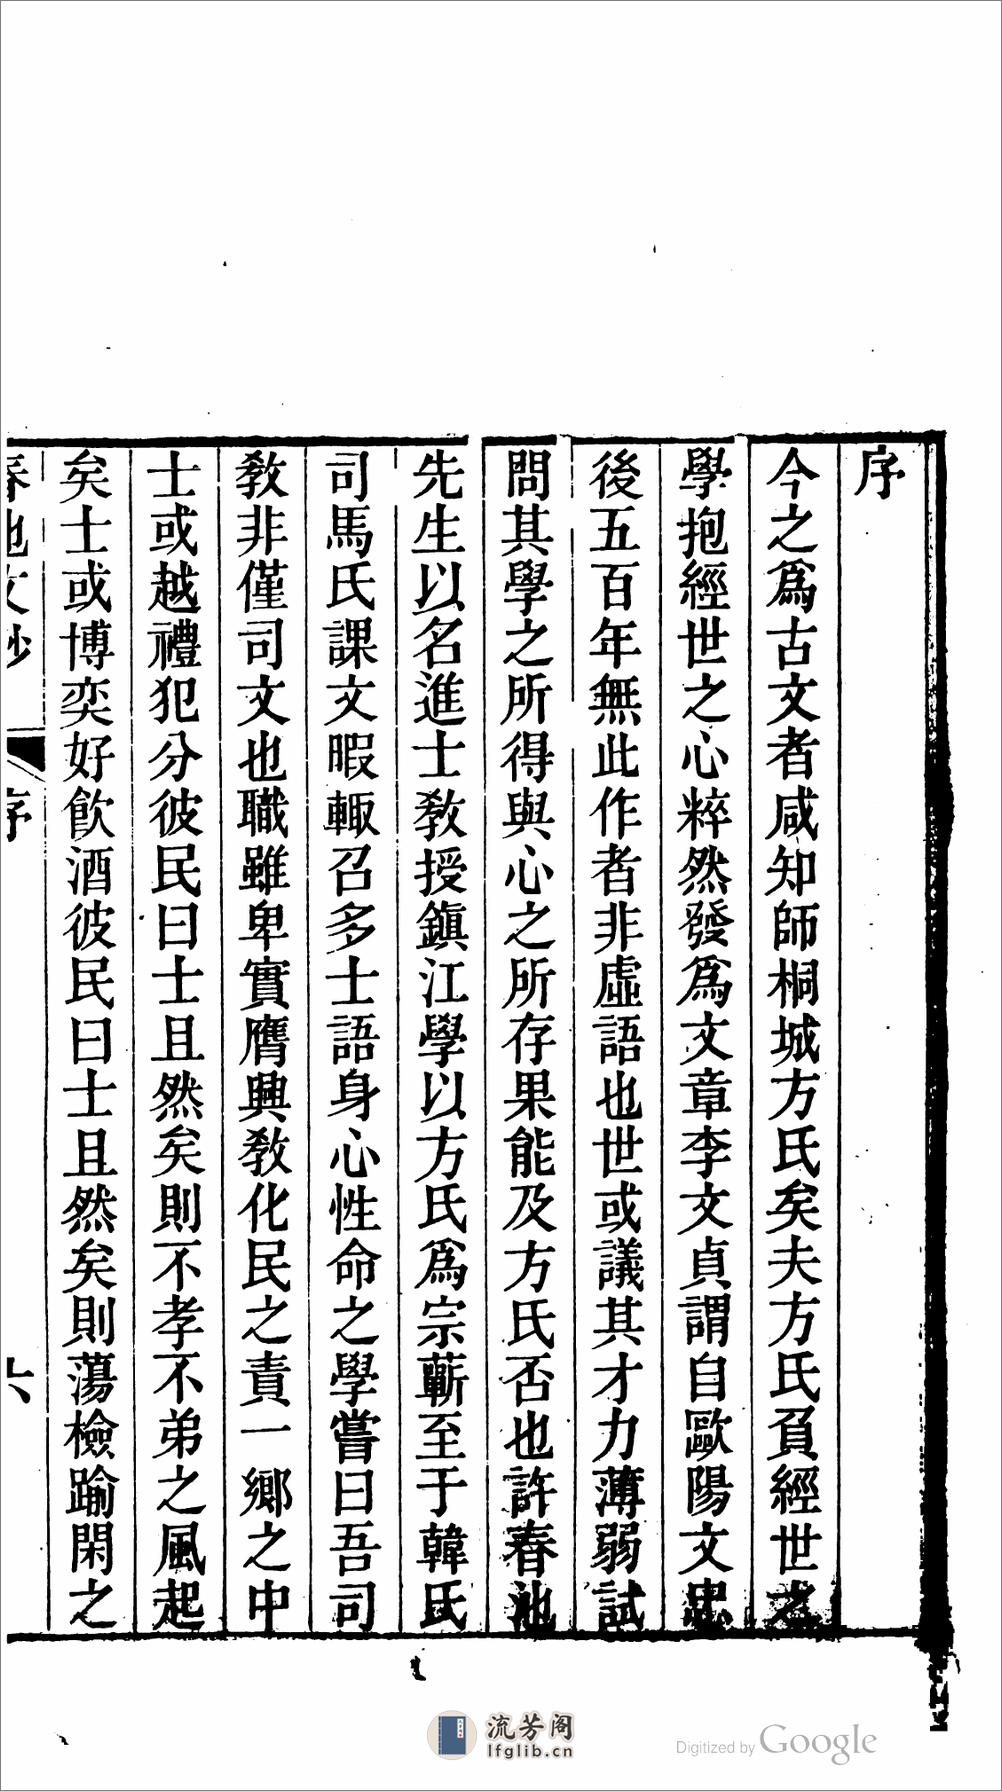 序
今之爲古文者咸知師桐城方氏矣夫方氏負經世之
學抱經世之心粹然發爲文章李文貞謂自歐陽文忠
後五百年無此作者非虛語也世或議其才力薄弱試
問其學之所得與心之所存果能及方氏否也許春池
先生以名進士教授鎭江學以方氏爲宗蘄至于韓氏
司馬氏課文暇輒召多士語身心性命之學嘗曰吾司
教非僅司文也職雖卑實膺興教化民之責一鄉之中
士或越禮犯分彼民曰士且然矣則不孝不弟之風起
矣士或博奕好飮酒彼民曰士且然矣則蕩檢踰閑之
春池文鈔
序
六
流芳阁
lfglib.cn
Digitized by Google